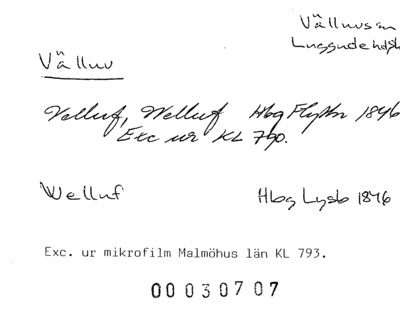 Välluvs sn
Luggude hd, Sk
Välluv
Velluf, Welluf Hbg Flyttn 1846
Exc ur KL 790.
Welluf Hbg Lysb 1846
Exc. ur mikrofilm Malmöhus län KL 793.
00030707